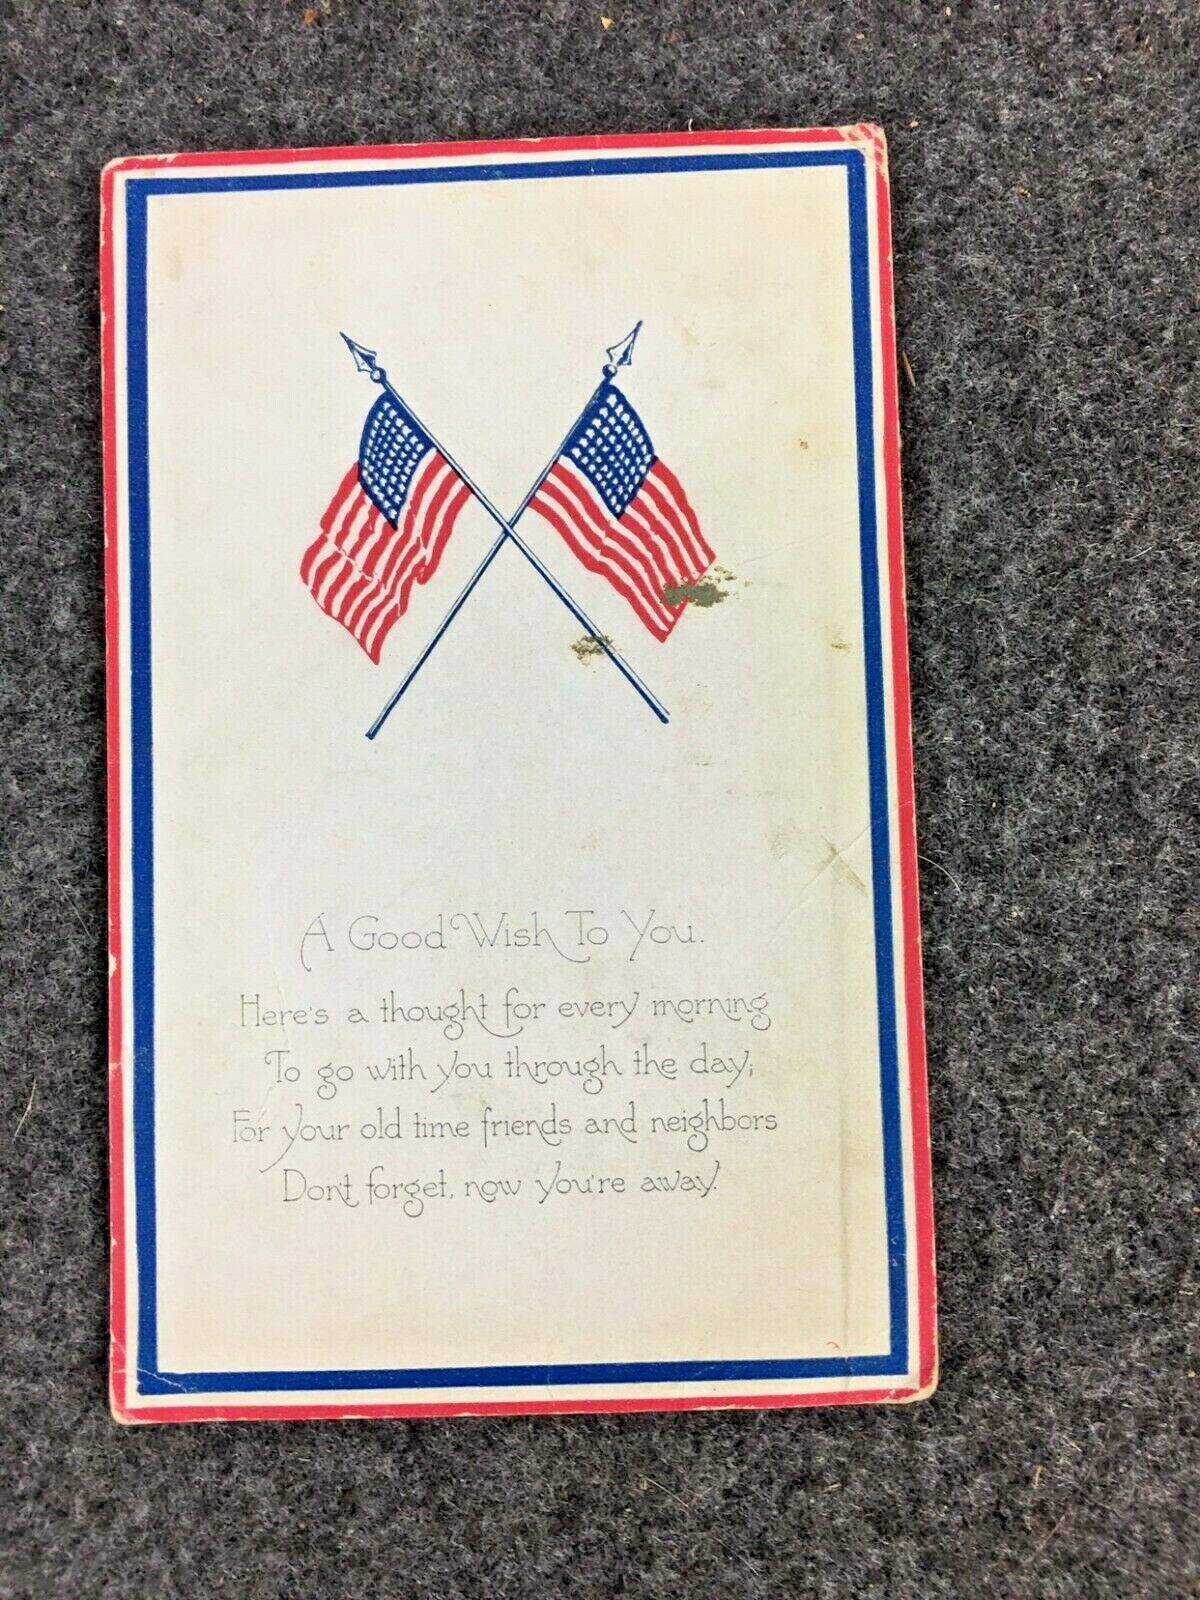 A Good Wish To You.
Here's a thought for every morning
To go with you through the day;
For your old time friends and neighbors
Don't forget, now you're away.